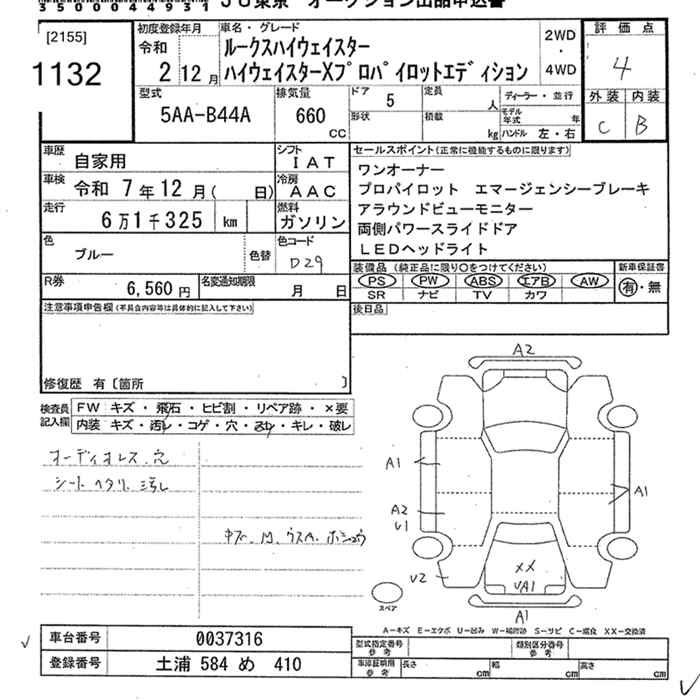 35000044931 JU東京 オークション出品申込書
[2155]
1132
初度登録年月
令和
2 12月
車名・グレード
ルークスハイウェイスター
ハイウェイスターXプロパイロットエディション
2WD
・
4WD
評価点
4
外装 内装
C B
型式
5AA-B44A
排気量
660
CC
ドア 5
形状
定員 人
積載 kg
ディーラー・並行
モデル年式 年
ハンドル 左・右
車歴 自家用
シフト IAT
車検 令和 7年12月( 日)
冷房 AAC
走行 6万1千325 km
燃料 ガソリン
色 ブルー 色替
色コード D29
R券 6,560円
名変通知期限 月 日
セールスポイント(正常に機能するものに限ります)
ワンオーナー
プロパイロット エマージェンシーブレーキ
アラウンドビューモニター
両側パワースライドドア
LEDヘッドライト
装備品(純正品に限り○をつけてください)
新車保証書
PS PW ABS エアB AW
有・無
SR ナビ TV カワ
後日品
注意事項申告欄(不具合内容等は具体的に記入して下さい)
修復歴 有〔箇所 〕
検査員記入欄
FW キズ・飛石・ヒビ割・リペア跡・×要
内装 キズ・汚レ・コゲ・穴・ スレ・キレ・破レ
オーディオレス. 穴
シート ヘタリ. 汚レ
キズ. 凹. ウスペ. ホシュウ
A2
A1
A2
U1
A1
U2
XX
UA1
A1
スペア
A-キズ E-エクボ U-凹み W-補修跡 S-サビ C-腐食 XX-交換済
車台番号 0037316
登録番号 土浦 584 め 410
型式指定番号
参考
類別区分番号
参考
車庫証明用
参考
長さ cm 幅 cm 高さ cm